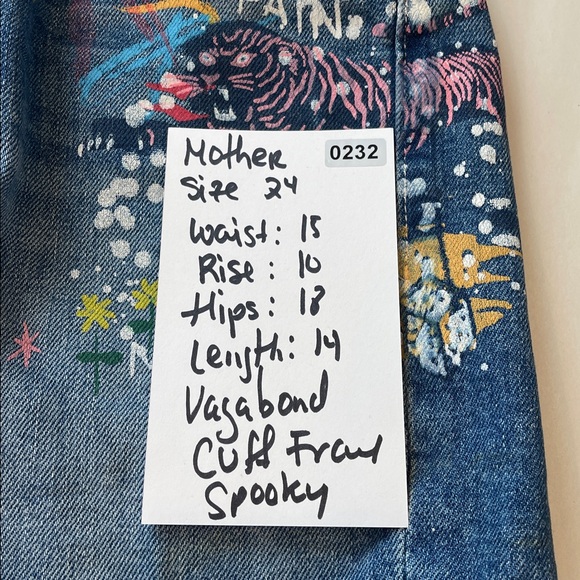 PAIN.
Mother 0232
Size 24
Waist: 15
Rise: 10
Hips: 18
Length: 14
Vagabond
Cuff Fray
Spooky